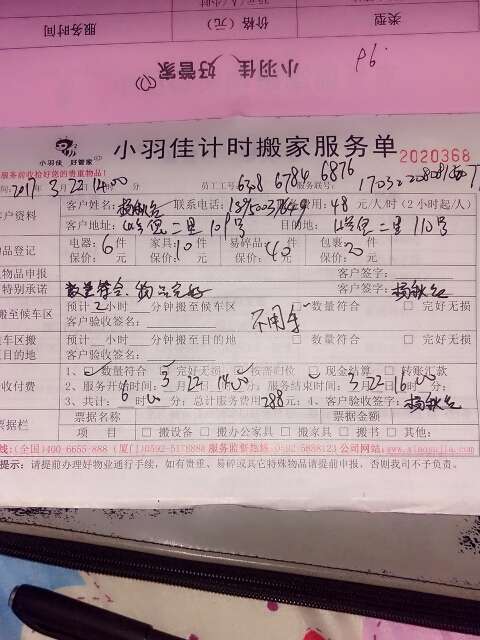 元/人/小时
类型
价格（元）
服务时间
小羽佳 好管家
P6.
小羽佳 好管家
小羽佳计时搬家服务单
2020368
服务前收拾好您的贵重物品!
间: 2017年 3月 22日 14:00 员工工号 6708 6784 6876 服务联号:
客户资料 客户姓名: 联系电话: 费用: 48 元/人/时(2小时起/人)
客户地址: 二里109号 目的地: 二里110号
物品登记 电器: 6件 家具: 10件 易碎品: 40件 包裹: 20件
保价: 元 保价: 元 保价: 元 保价: 元
物品申报 客户签字:
特别承诺 数量符合、物品完好 客户签字:
搬至候车区 预计2小时 分钟搬至候车区 不用车 □数量符合 □完好无损
客户验收签名:
车区搬 预计 小时 分钟搬至目的地 □数量符合 □完好无损
至目的地 客户验收签名:
收付费 1、数量符合 完好无损 按需归位 □现金结算 □转账汇款
2、服务开始时间: 3月22日14:00分; 服务结束时间: 3月22日16:00分;
3、共计: 6时00分; 总计服务费用288元; 4、客户验收签字:
票据栏 票据名称 票据金额
项目 □搬设备 □搬办公家具 □搬家具 □搬书 □其他:
线: (全国)400-6655-888 (厦门)0592-5178888 服务监督热线: 0592-5888812 公司网站: www.xiaoyujia.com
提示: 请提前办理好物业通行手续，如有贵重、易碎或其它特殊物品请提前申报，否则我司不予负责。